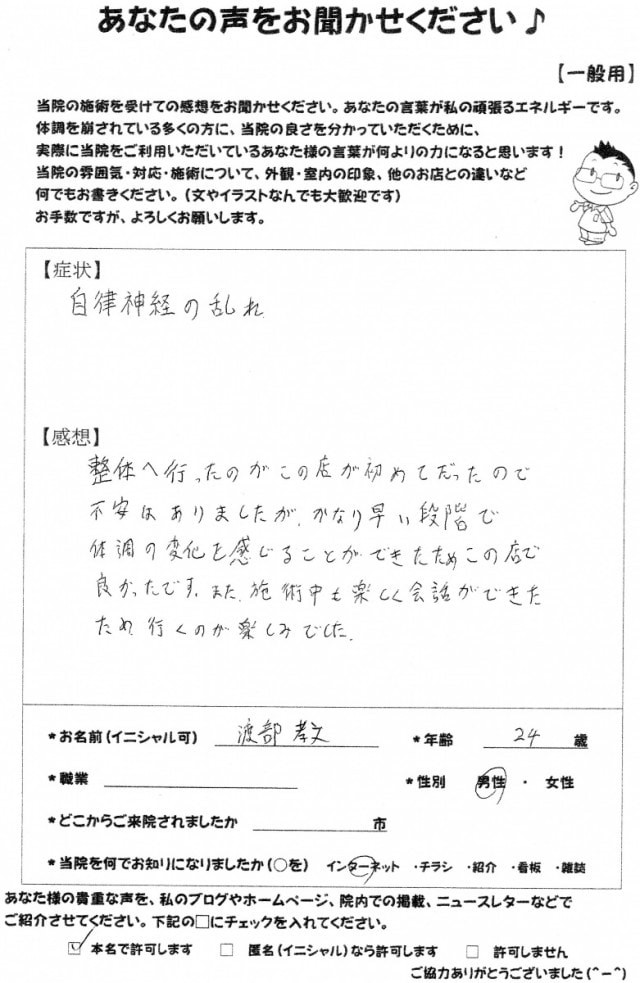 あなたの声をお聞かせください♪
【一般用】
当院の施術を受けての感想をお聞かせください。あなたの言葉が私の頑張るエネルギーです。
体調を崩されている多くの方に、当院の良さを分かっていただくために、
実際に当院をご利用いただいているあなた様の言葉が何よりの力になると思います！
当院の雰囲気・対応・施術について、外観・室内の印象、他のお店との違いなど
何でもお書きください。（文やイラストなんでも大歓迎です）
お手数ですが、よろしくお願いします。
【症状】
自律神経の乱れ
【感想】
整体へ行ったのがこの店が初めてだったので
不安はありましたが、かなり早い段階で
体調の変化を感じることができたためこの店で
良かったです。また、施術中も楽しく会話ができた
ため、行くのが楽しみでした。
*お名前（イニシャル可） 渡部 孝文 *年齢 24 歳
*職業 *性別 男性 ・ 女性
*どこからご来院されましたか 市
*当院を何でお知りになりましたか（○を） インターネット ・チラシ ・紹介 ・看板 ・雑誌
あなた様の貴重な声を、私のブログやホームページ、院内での掲載、ニュースレターなどで
ご紹介させてください。下記の□にチェックを入れてください。
☑ 本名で許可します □ 匿名（イニシャル）なら許可します □ 許可しません
ご協力ありがとうございました（^－^）